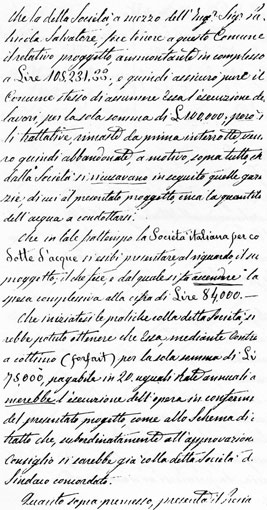 che la detta Società, a mezzo dell'Ing.re Sig.r La
Nicola Salvatore, fece tenere a questo Comune
il relativo progetto, ammontante in complesso
a Lire 108,231,33, e quindi assicurò pure il
Comune stesso di assumere Essa l'esecuzione de
lavori, per la sola somma di £ 100,000, però i
li trattative, rimaste da prima interrotte, ven
ro quindi abbandonate, a motivo, sopra tutto, ch
dalla Società si ricusavano in seguito quelle gar
zie, di cui al presentato progetto, circa la quantità
dell'acqua, a condottarsi.
Che in tale frattempo la Società italiana per co
dotte d'acque si esibì presentare al riguardo il su
progetto, il che fece, e dal quale si fa ascendere la
spesa complessiva alla cifra di Lire 84,000.—
Che iniziatesi le pratiche colla detta Società, si
rebbe potuto ottenere che Essa, mediante Contra
a cottimo (forfait) per la sola somma di Li
75,000, pagabile in 20 uguali Rate annuali a
merebbe l'esecuzione dell'opera in conform
del presentato progetto, come allo Schema di
tratto che, subordinatamente all'approvazion
Consiglio si sarebbe già colla detta Società d
Sindaco concordato.
Quanto sopra premesso, presenta il Sinda